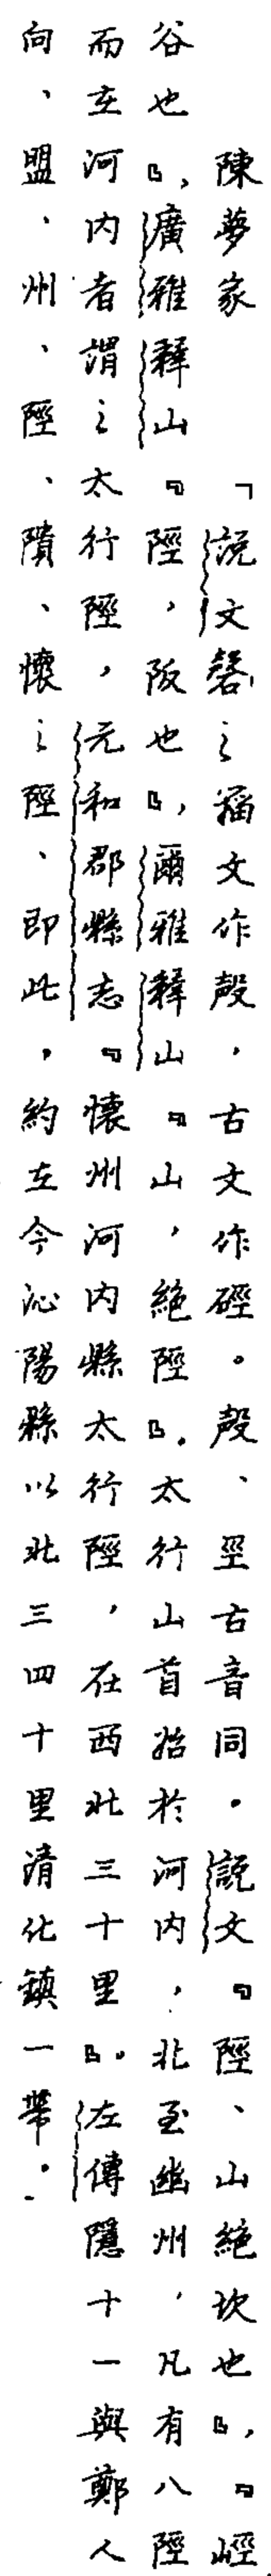 陳夢家　「說文磬之籀文作殸，古文作硜。殸、巠古音同。說文『陘、山絕坎也』，『峌
谷也』，廣雅釋山『陘，阪也』，爾雅釋山『山，絕陘』。太行山首始於河内，北至幽州，凡有八陘
而在河内者謂之太行陘，元和郡縣志『懷州河内縣太行陘，在西北三十里』。左傳隱十一與鄭人
向、盟、州、陘、隤、懷之陘、即此，約在今沁陽縣以北三四十里清化鎮一帶。